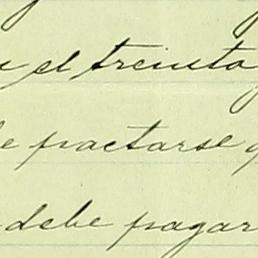 el treinta
pactarse
debe pagar